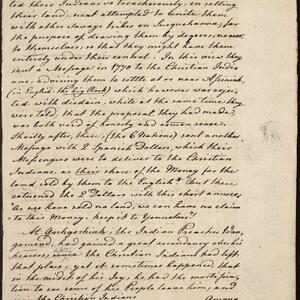 ted these Indians so treacherously, in selling
their land, next attempted to unite them
with other savage tribes on Susquehanna, for
the purpose of drawing them by degrees, nearer
to themselves, so that they might have them
entirely under their control. In this view they
sent a Message in 1770 to the Christian Indi-
ans, advising them to settle at or near Assinink,
(in English: the big Rock) which however was rejec-
ted with disdain, while at the same time they
were told, that the proposal they had made,
was both void of honesty and common reason.
Shortly after, these (the 6 Nations) sent another
Message with 2 Spanish Dollars, which their
Messengers were to deliver to the Christian
Indians, as their share of the Money for the
land sold by them to the English: But these
returned the 2 Dollars with this short answer,
As we have sold no land, we can have no claim
to this Money: keep it to Yourselves!
At Goshgoshink, the Indian Preacher Wan-
gomend, had gained a great ascendancy over his
hearers, since the Christian Indians had left
that place; yet it sometimes happened that
in the midst of his Joy, he had the mortifica-
tion to see some of his People leave him, and
join the Christian Indians
Among